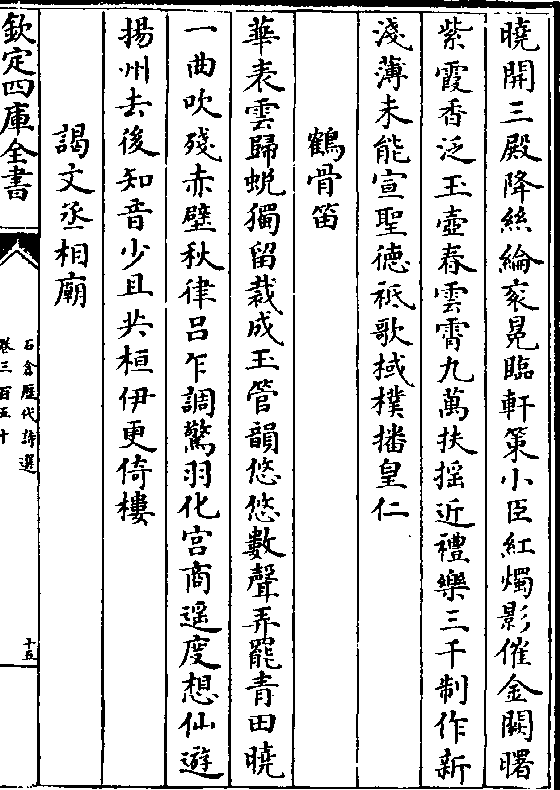 曉開三殿降絲綸衮冕臨軒策小臣紅燭影催金闕曙
紫霞香泛玉壺春雲霄九萬扶揺近禮樂三千制作新
淺薄未能宣聖徳祗歌棫樸播皇仁
鶴骨笛
華表雲歸蜕獨留裁成玉管韻悠悠數聲弄罷青田曉
一曲吹殘赤壁秋律吕乍調驚羽化宫商遥度想仙遊
揚州去後知音少且共桓伊更倚樓
謁文丞相廟
欽定四庫全書
石倉歷代詩選
卷三百五十
十五